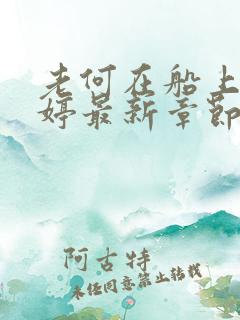 老何在船上
婷最新章节
阿古特
未经同意禁止转载